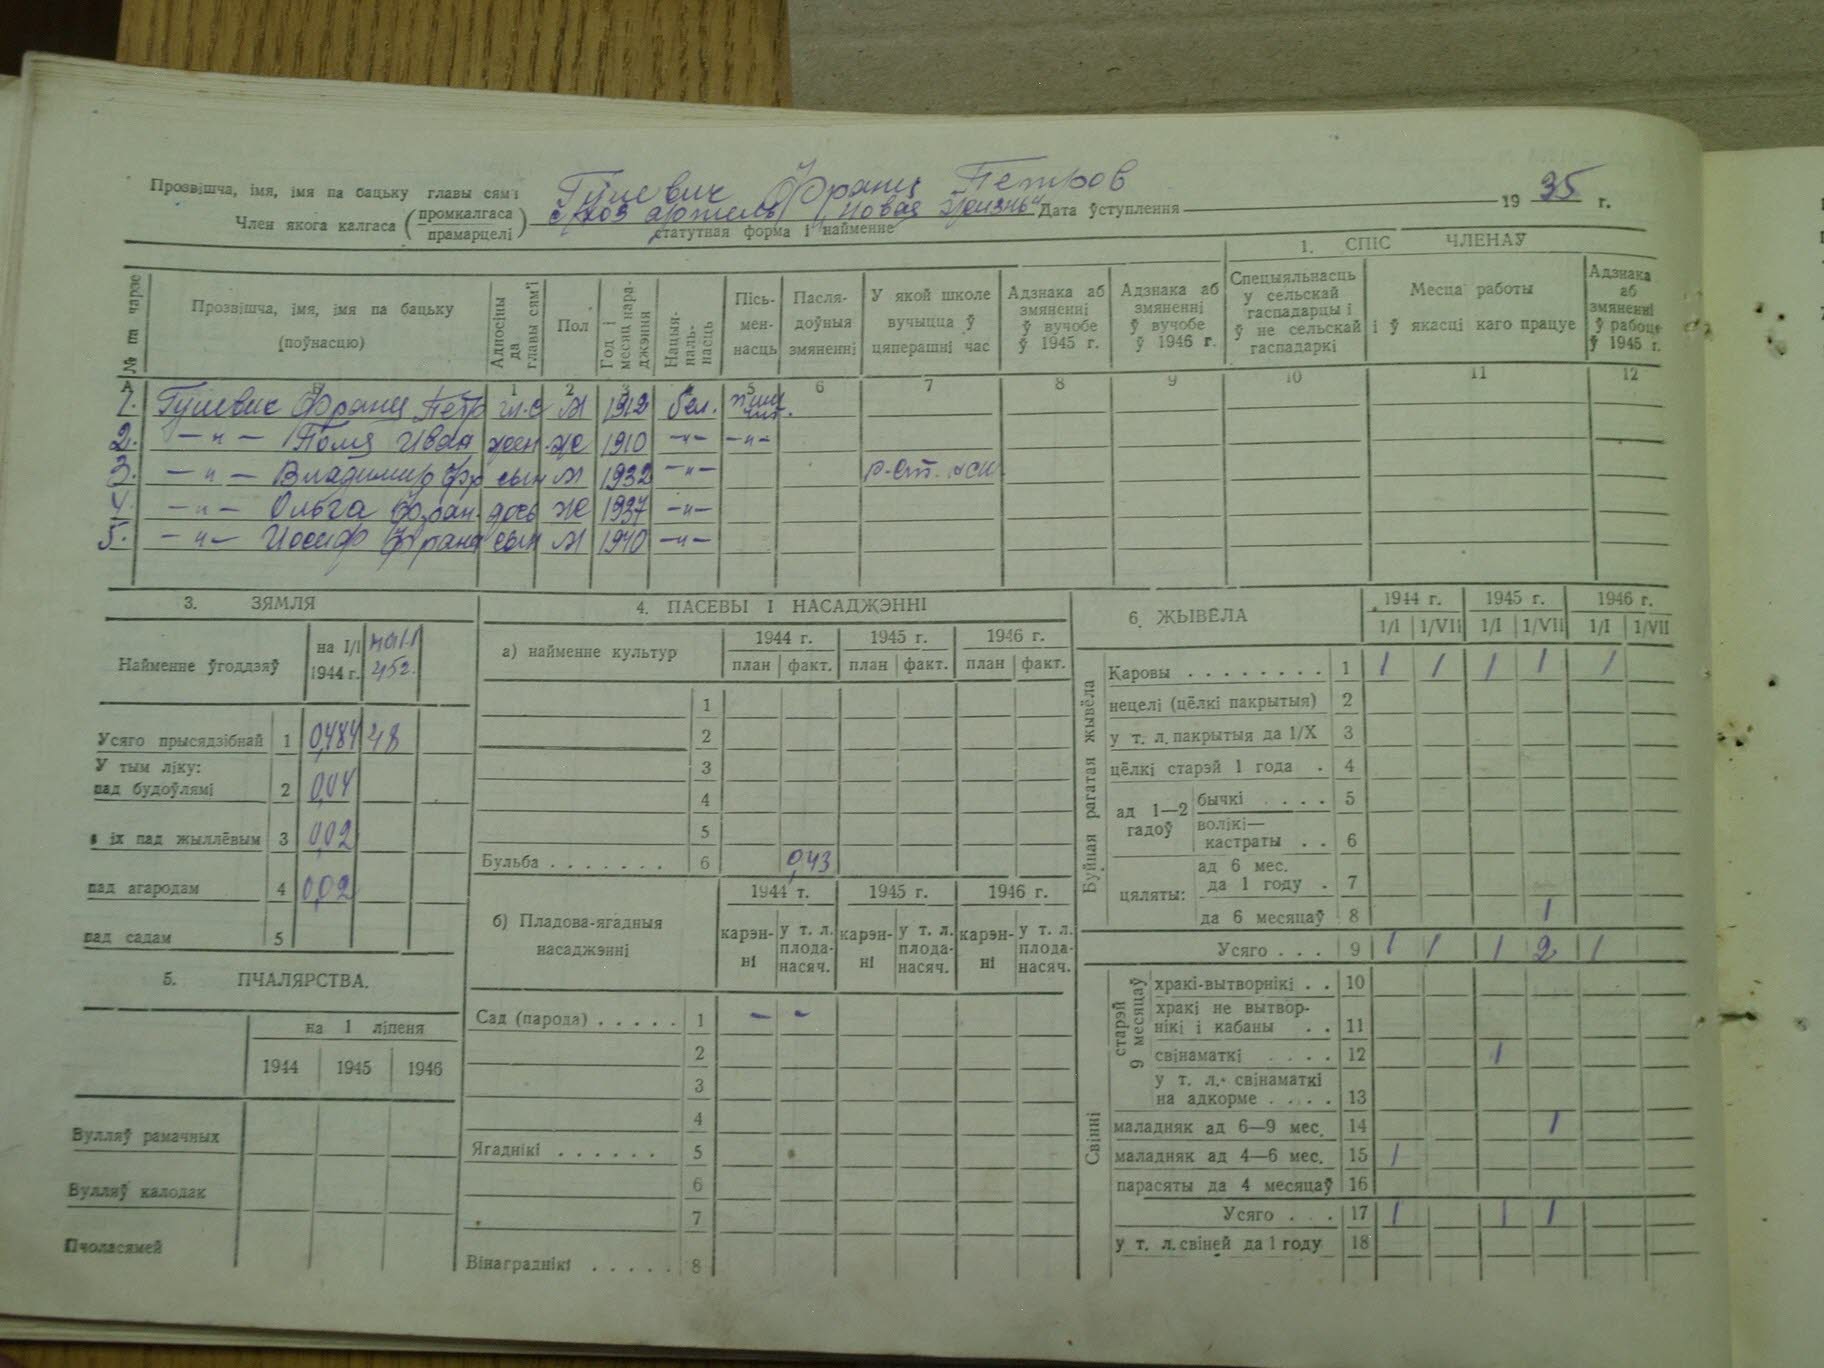 Прозвішча, імя, імя па бацьку главы сям'і Гулевич Франц Петров
Член якога калгаса (промкалгаса прамарцелі) с/хоз артель „Новая жизнь“ Дата ўступлення 1935 г.
статутная форма і найменне
1. СПІС ЧЛЕНАЎ
№ па чарзе
Прозвішча, імя, імя па бацьку (поўнасцю)
Адносіны да главы сям'і
Пол
Год і месяц нараджэння
Нацыянальнасць
Пісьменнасць
Паслядоўныя змяненні
У якой школе вучыцца ў цяперашні час
Адзнака аб змяненні ў вучобе ў 1945 г.
Адзнака аб змяненні ў вучобе ў 1946 г.
Спецыяльнасць у сельскай гаспадарцы і ў не сельскай гаспадаркі
Месца работы і ў якасці каго працуе
Адзнака аб змяненні ў рабоце ў 1945 г.
А Б 1 2 3 4 5 6 7 8 9 10 11 12
1. Гулевич Франц Петр гл. с м 1912 бел.
2. —"— Иван жен. ж 1910 —"— —"—
3. —"— Владимир Фр сын м 1932 —"—
4. —"— Ольга Фран. дочь ж 1937 —"—
5. —"— Иосиф Франц сын м 1940 —"—
3. ЗЯМЛЯ
Найменне ўгоддзяў
на 1/I 1944 г.
на 1/I 45г.
Усяго прысядзібнай 1 0,484 48
У тым ліку:
пад будоўлямі 2 0,04
з іх пад жыллёвым 3 0,02
пад агародам 4 0,02
пад садам 5
5. ПЧАЛЯРСТВА.
на 1 ліпеня
1944 1945 1946
Вулляў рамачных
Вулляў калодак
Пчоласямей
4. ПАСЕВЫ І НАСАДЖЭННІ
а) найменне культур
1944 г. 1945 г. 1946 г.
план факт. план факт. план факт.
1
2
3
4
5
Бульба . . . . . . . 6 0,43
б) Пладова-ягадныя насаджэнні
1944 г. 1945 г. 1946 г.
карэнні у т. л. плоданасяч. карэнні у т. л. плоданасяч. карэнні у т. л. плоданасяч.
Сад (парода) . . . . . 1 – –
2
3
4
Ягаднікі . . . . . . 5
6
7
Вінаграднікі . . . . . 8
6. ЖЫВЁЛА
1944 г. 1945 г. 1946 г.
1/I 1/VII 1/I 1/VII 1/I 1/VII
Буйная рагатая жывёла
Каровы . . . . . . . . 1 1 1 1 1 1
нецелі (цёлкі пакрытыя) 2
у т. л. пакрытыя да 1/X 3
цёлкі старэй 1 года . 4
ад 1—2 гадоў
бычкі . . . . 5
волікі—кастраты . . 6
цяляты:
ад 6 мес. да 1 году . 7
да 6 месяцаў 8 1
Усяго . . . 9 1 1 1 2 1
Свінні
старэй 9 месяцаў
хракі-вытворнікі . . 10
хракі не вытворнікі і кабаны . . 11
свінаматкі . . . . 12 1
у т. л. свінаматкі на адкорме . . . . 13
маладняк ад 6—9 мес. 14 1
маладняк ад 4—6 мес. 15 1
парасяты да 4 месяцаў 16
Усяго . . . 17 1 1 1
у т. л. свіней да 1 году 18